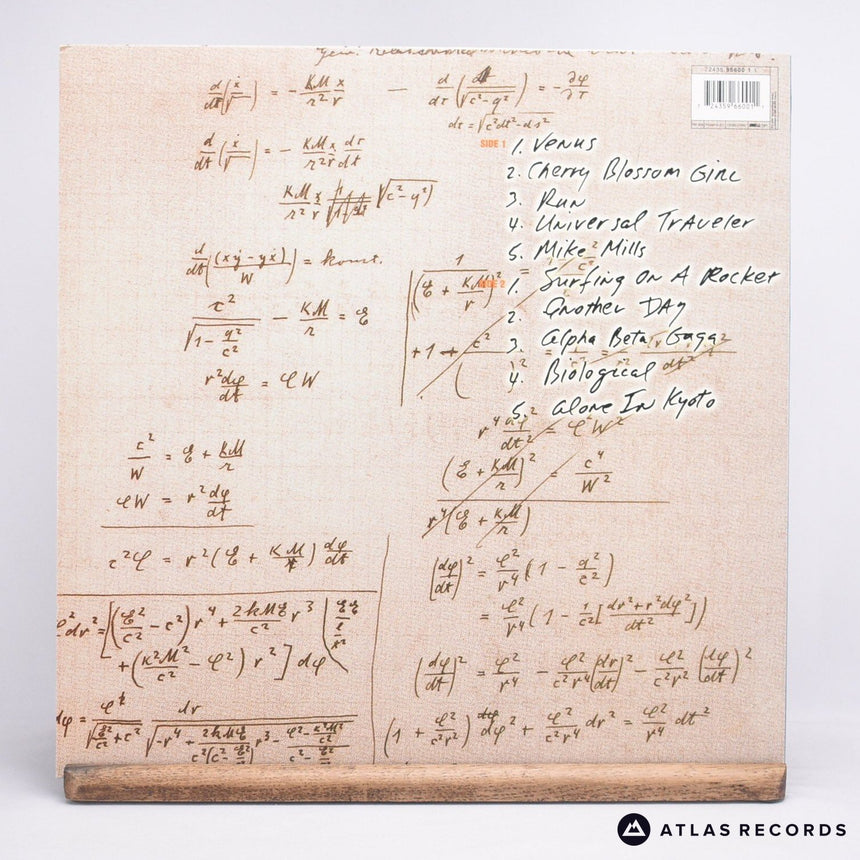 72435 96600 1 1
SIDE 1 1. Venus
2. Cherry Blossom Girl
3. Run
4. Universal Traveler
5. Mike Mills
SIDE 2 1. Surfing On A Rocket
2. Another Day
3. Alpha Beta Gaga
4. Biological
5. Alone In Kyoto
d/dt(ẋ/√) = - KM/r² x/r
— d/dτ(dt/√(c²-q²)) = - ∂φ/∂r
dτ = √(c²dt²-ds²)
d/dt(ẋ/√) = - KM/r² x/r dτ/dt
KM/r² x/r √(c²-q²)
d/dt((xẏ-yẋ)/W) = konst.
c²/√(1-q²/c²) - KM/r = E
r²dφ/dt = φW
c²/W = E + KM/r
φW = r² dφ/dt
c²φ = r²(E + KM/r) dφ/dt
r⁴ dφ²/dt² = φ²W²
(E + KM/r)² = c⁴/W²
r⁴(E + KM/r)
(dφ/dt)² = φ²/r⁴ (1 - q²/c²)
= φ²/r⁴ (1 - 1/c² [(dr²+r²dφ²)/dt²])
(dφ/dt)² = φ²/r⁴ - φ²/c²r⁴ (dr/dt)² - φ²/c²r² (dφ/dt)²
(1 + φ²/c²r²) dφ² + φ²/c²r⁴ dr² = φ²/r⁴ dt²
φ²dr² = [(E²/c² - c²) r⁴ + 2KME/c² r³
+ (K²M²/c² - φ²) r²] dφ
ATLAS RECORDS